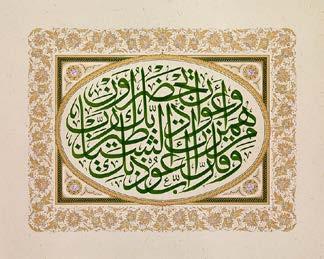 وقل رب أعوذ بك
من همزات الشياطين
وأعوذ بك رب أن يحضرون